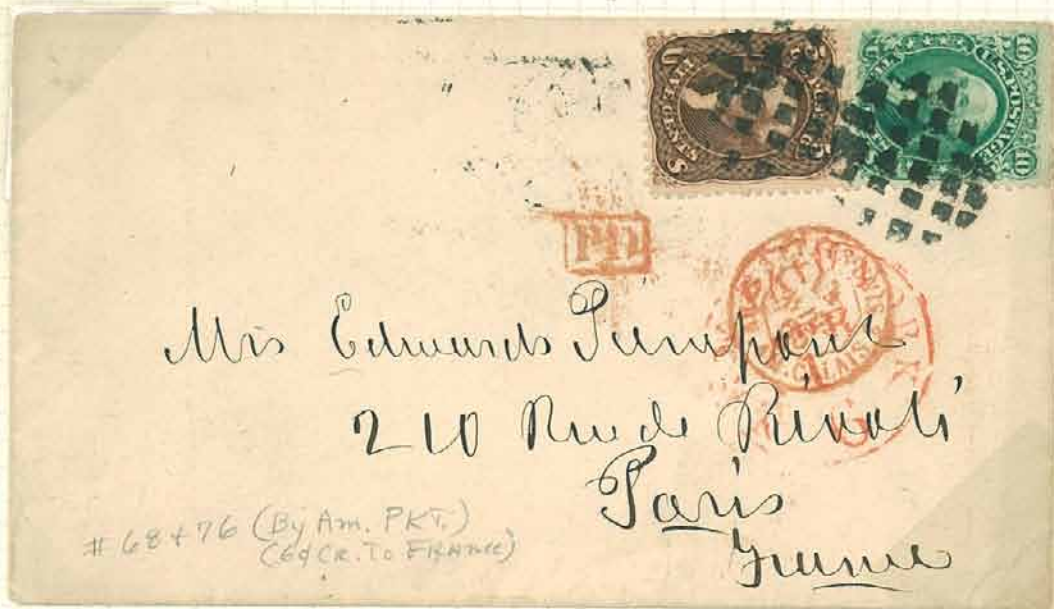 FIVE CENTS
U.S. POSTAGE
10
10
PD
CALAIS
Mrs Edwards Pierrepont
210 Rue de Rivoli
Paris
France
#68+76 (By Am. PKT.)
(6¢ CR. TO FRANCE)